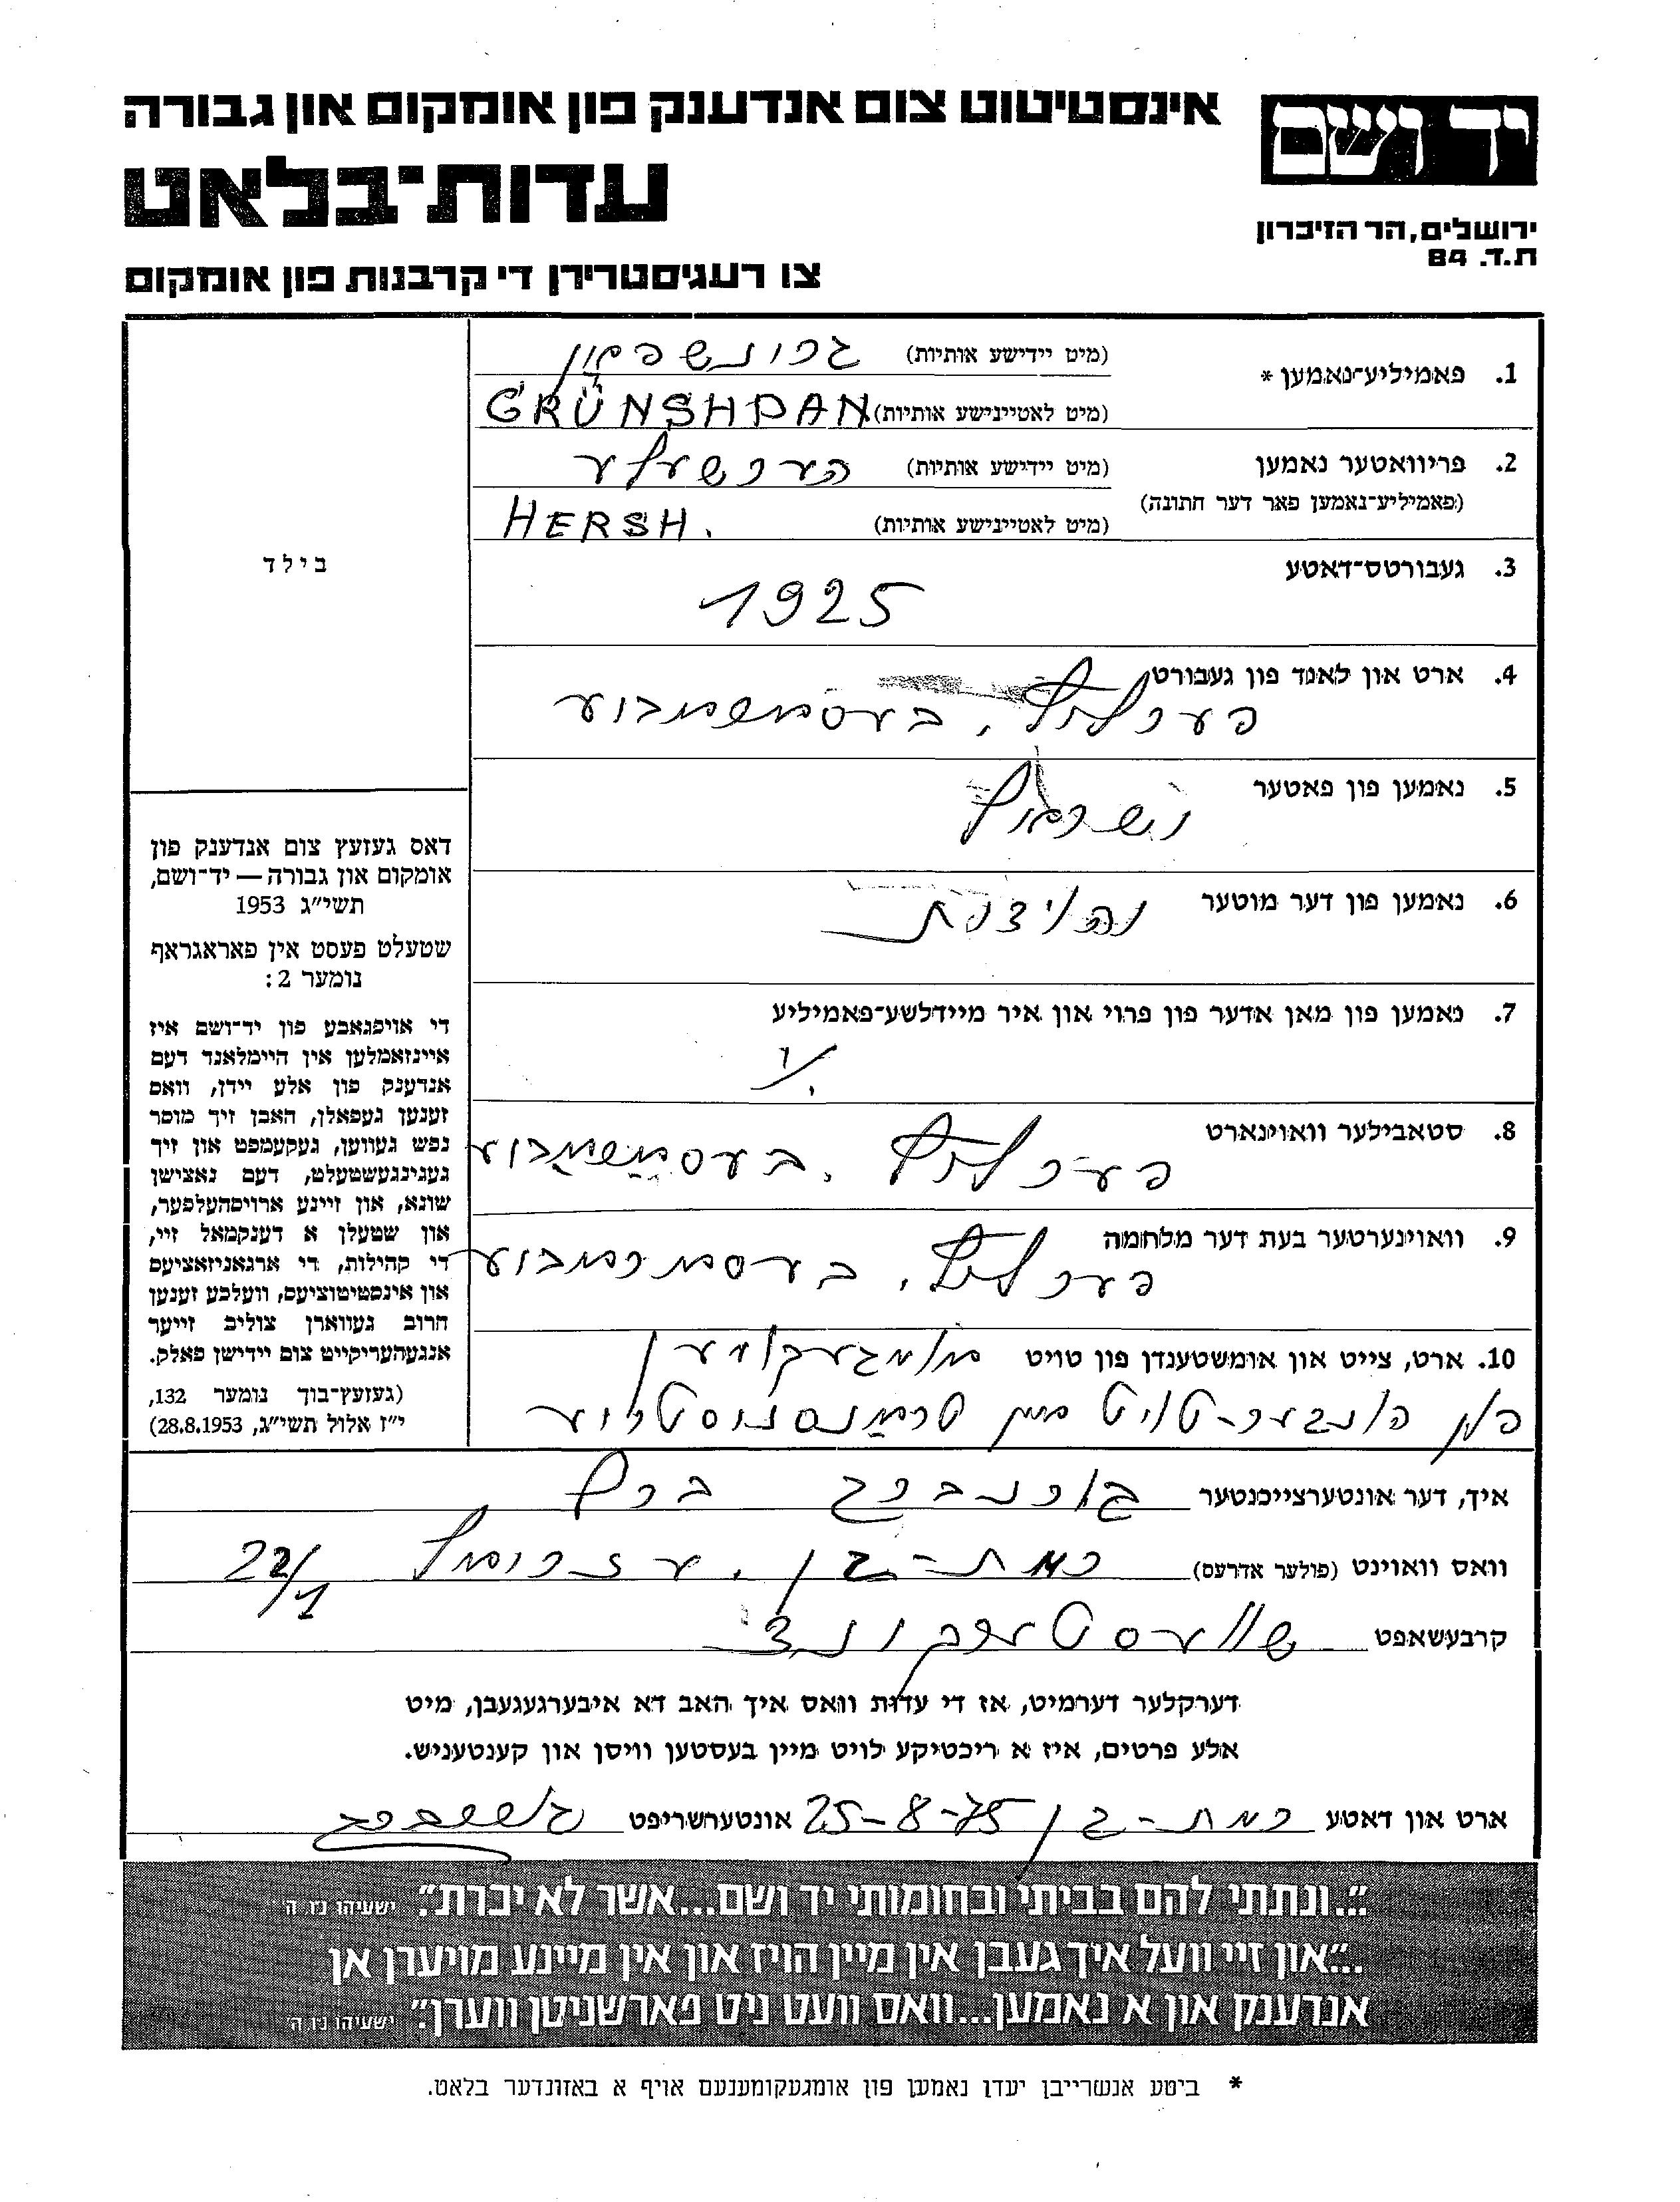 אינסטיטוט צום אנדענק פון אומקום און גבורה
יד ושם
עדות־בלאט
ירושלים, הר הזיכרון
ת.ד. 84
צו רעגיסטרירן די קרבנות פון אומקום
1. פאמיליע־נאמען *
(מיט יידישע אותיות) גרונשפאן
(מיט לאטיינישע אותיות) GRÜNSHPAN
2. פריוואטער נאמען
(פאמיליע־נאמען פאר דער חתונה)
(מיט יידישע אותיות) הערשעלע
(מיט לאטיינישע אותיות) HERSH.
בילד
3. געבורטס־דאטע
1925
4. ארט און לאנד פון געבורט
בעסאראביע
5. נאמען פון פאטער
ישראל
6. נאמען פון דער מוטער
7. נאמען פון מאן אדער פון פרוי און איר מיידלשע־פאמיליע
8. סטאבילער וואוינארט
בעסאראביע
9. וואוינערטער בעת דער מלחמה
בעסאראביע
10. ארט, צייט און אומשטענדן פון טויט אומגעקומען
פון הונגער־טויט אין טראנסניסטריע
דאס געזעץ צום אנדענק פון
אומקום און גבורה — יד־ושם,
תשי״ג 1953
שטעלט פעסט אין פאראגראף
נומער 2:
די אויפגאבע פון יד־ושם איז
איינזאמלען אין היימלאנד דעם
אנדענק פון אלע יידן, וואס
זענען געפאלן, האבן זיך מוסר
נפש געווען, געקעמפט און זיך
געגינגעשטעלט, דעם נאצישן
שונא, און זיינע ארויסהעלפער,
און שטעלן א דענקמאל זיי,
די קהילות, די ארגאניזאציעס
און אינסטיטוציעס, וועלכע זענען
חרוב געווארן צוליב זייער
אנגעהעריקייט צום יידישן פאלק.
(געזעץ־בוך נומער 132,
י״ז אלול תשי״ג, 28.8.1953)
איך, דער אונטערצייכנטער גוינבערג
וואס וואוינט (פולער אדרעס) רמת־גן, עזריאל 22/1
קרבעשאפט שוועסטערקינד
דערקלער דערמיט, אז די עדות וואס איך האב דא איבערגעגעבן, מיט
אלע פרטים, איז א ריכטיקע לויט מיין בעסטען וויסן און קענטעניש.
ארט און דאטע רמת־גן 25-8-75 אונטערשריפט
״...ונתתי להם בביתי ובחומותי יד ושם...אשר לא יכרת״. ישעיהו נו, ה
...״און זיי וועל איך געבן אין מיין הויז און אין מיינע מויערן אן
אנדענק און א נאמען...וואס וועט ניט פארשניטן ווערן״. ישעיהו נו, ה
* ביטע אנשרייבן יעדן נאמען פון אומגעקומענעם אויף א באזונדער בלאט.